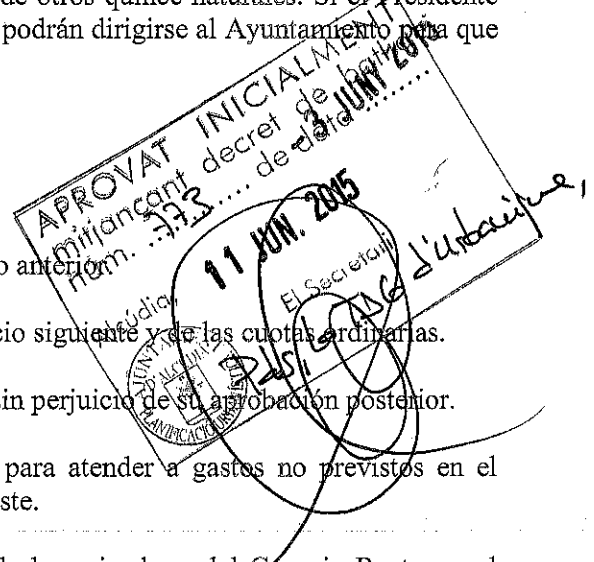 de otros quince naturales. Si el Presidente
podrán dirigirse al Ayuntamiento para que
APROVAT INICIALMENT
mitjançant decret de batlia
núm. 773 de data -3 JUNY 2015
Alcúdia, 11 JUN. 2015
El Secretari
d'Urbanisme,
AJUNTAMENT
D'ALCÚDIA
o anterior.
cio siguiente y de las cuotas ordinarias.
sin perjuicio de su aprobación posterior.
para atender a gastos no previstos en el
ste.